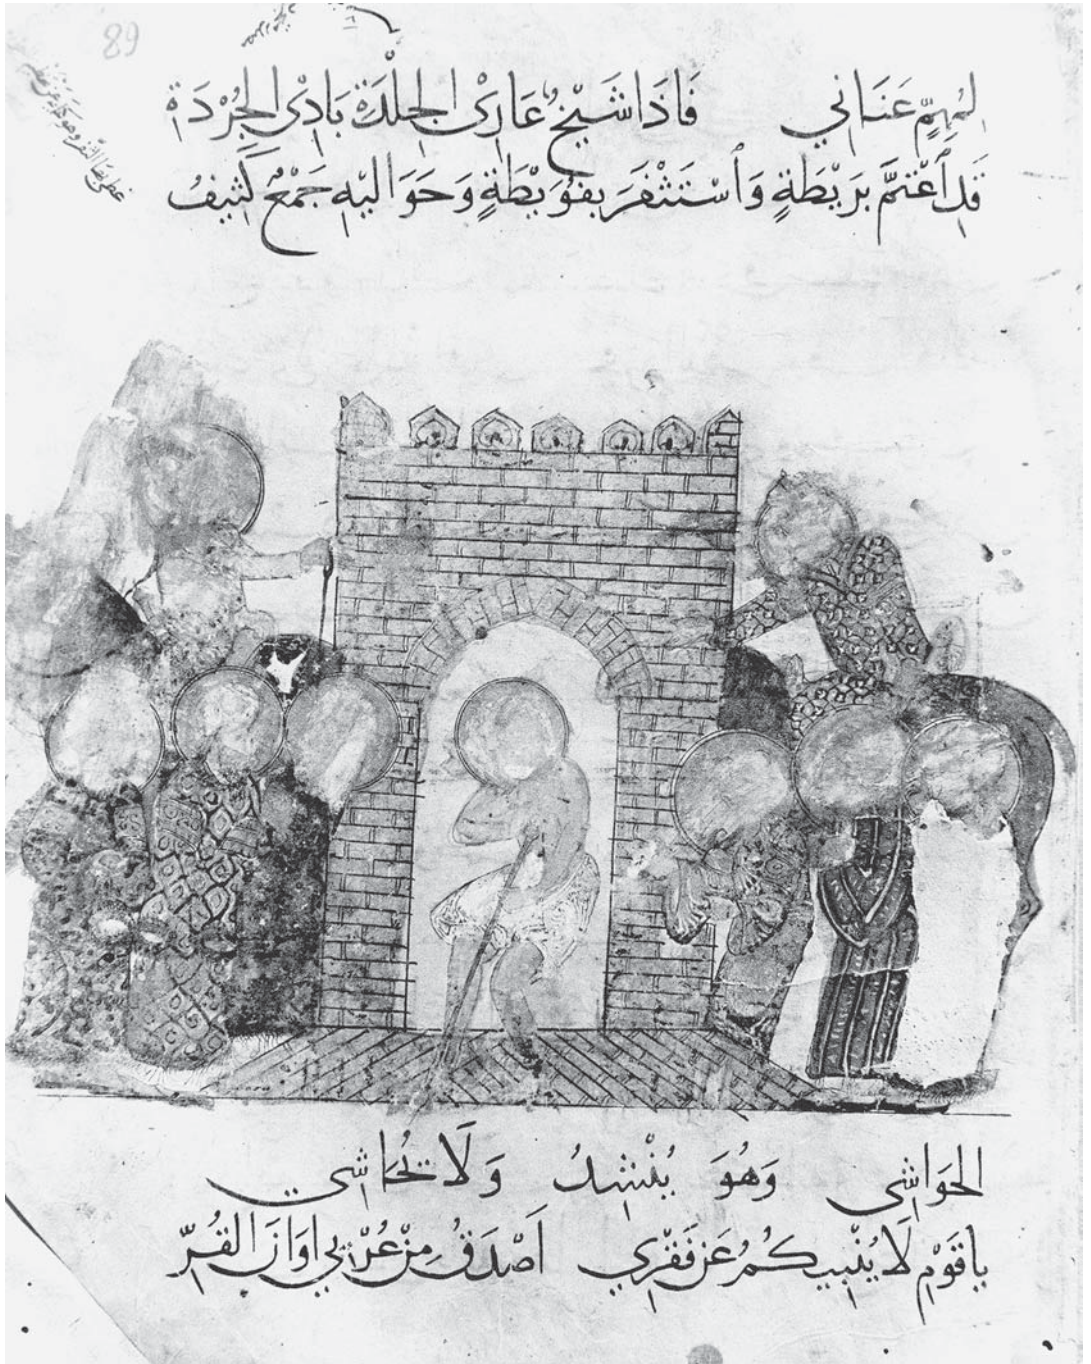 89
لِمُهِمٍّ عَنَانِي فَاذَا شَيْخٌ عَارِىْ الجِلْدَةِ بَادِىْ الجُرْدَةِ
قَدِ ٱعْتَمَّ بِرَيْطَةٍ وَٱسْتَثْفَرَ بِفُوَيْطَةٍ وَحَوَالَيْهِ جَمْعٌ كَثِيفُ
الحَوَاشِي وَهُوَ يُنْشِدُ وَلَا يُحَاشِي
يَا قَوْمِ لَا يُنْبِيكُمُ عَنْ فَقْرِي اَصْدَقُ مِنْ عُرْيِي اوَانَ القُرِّ